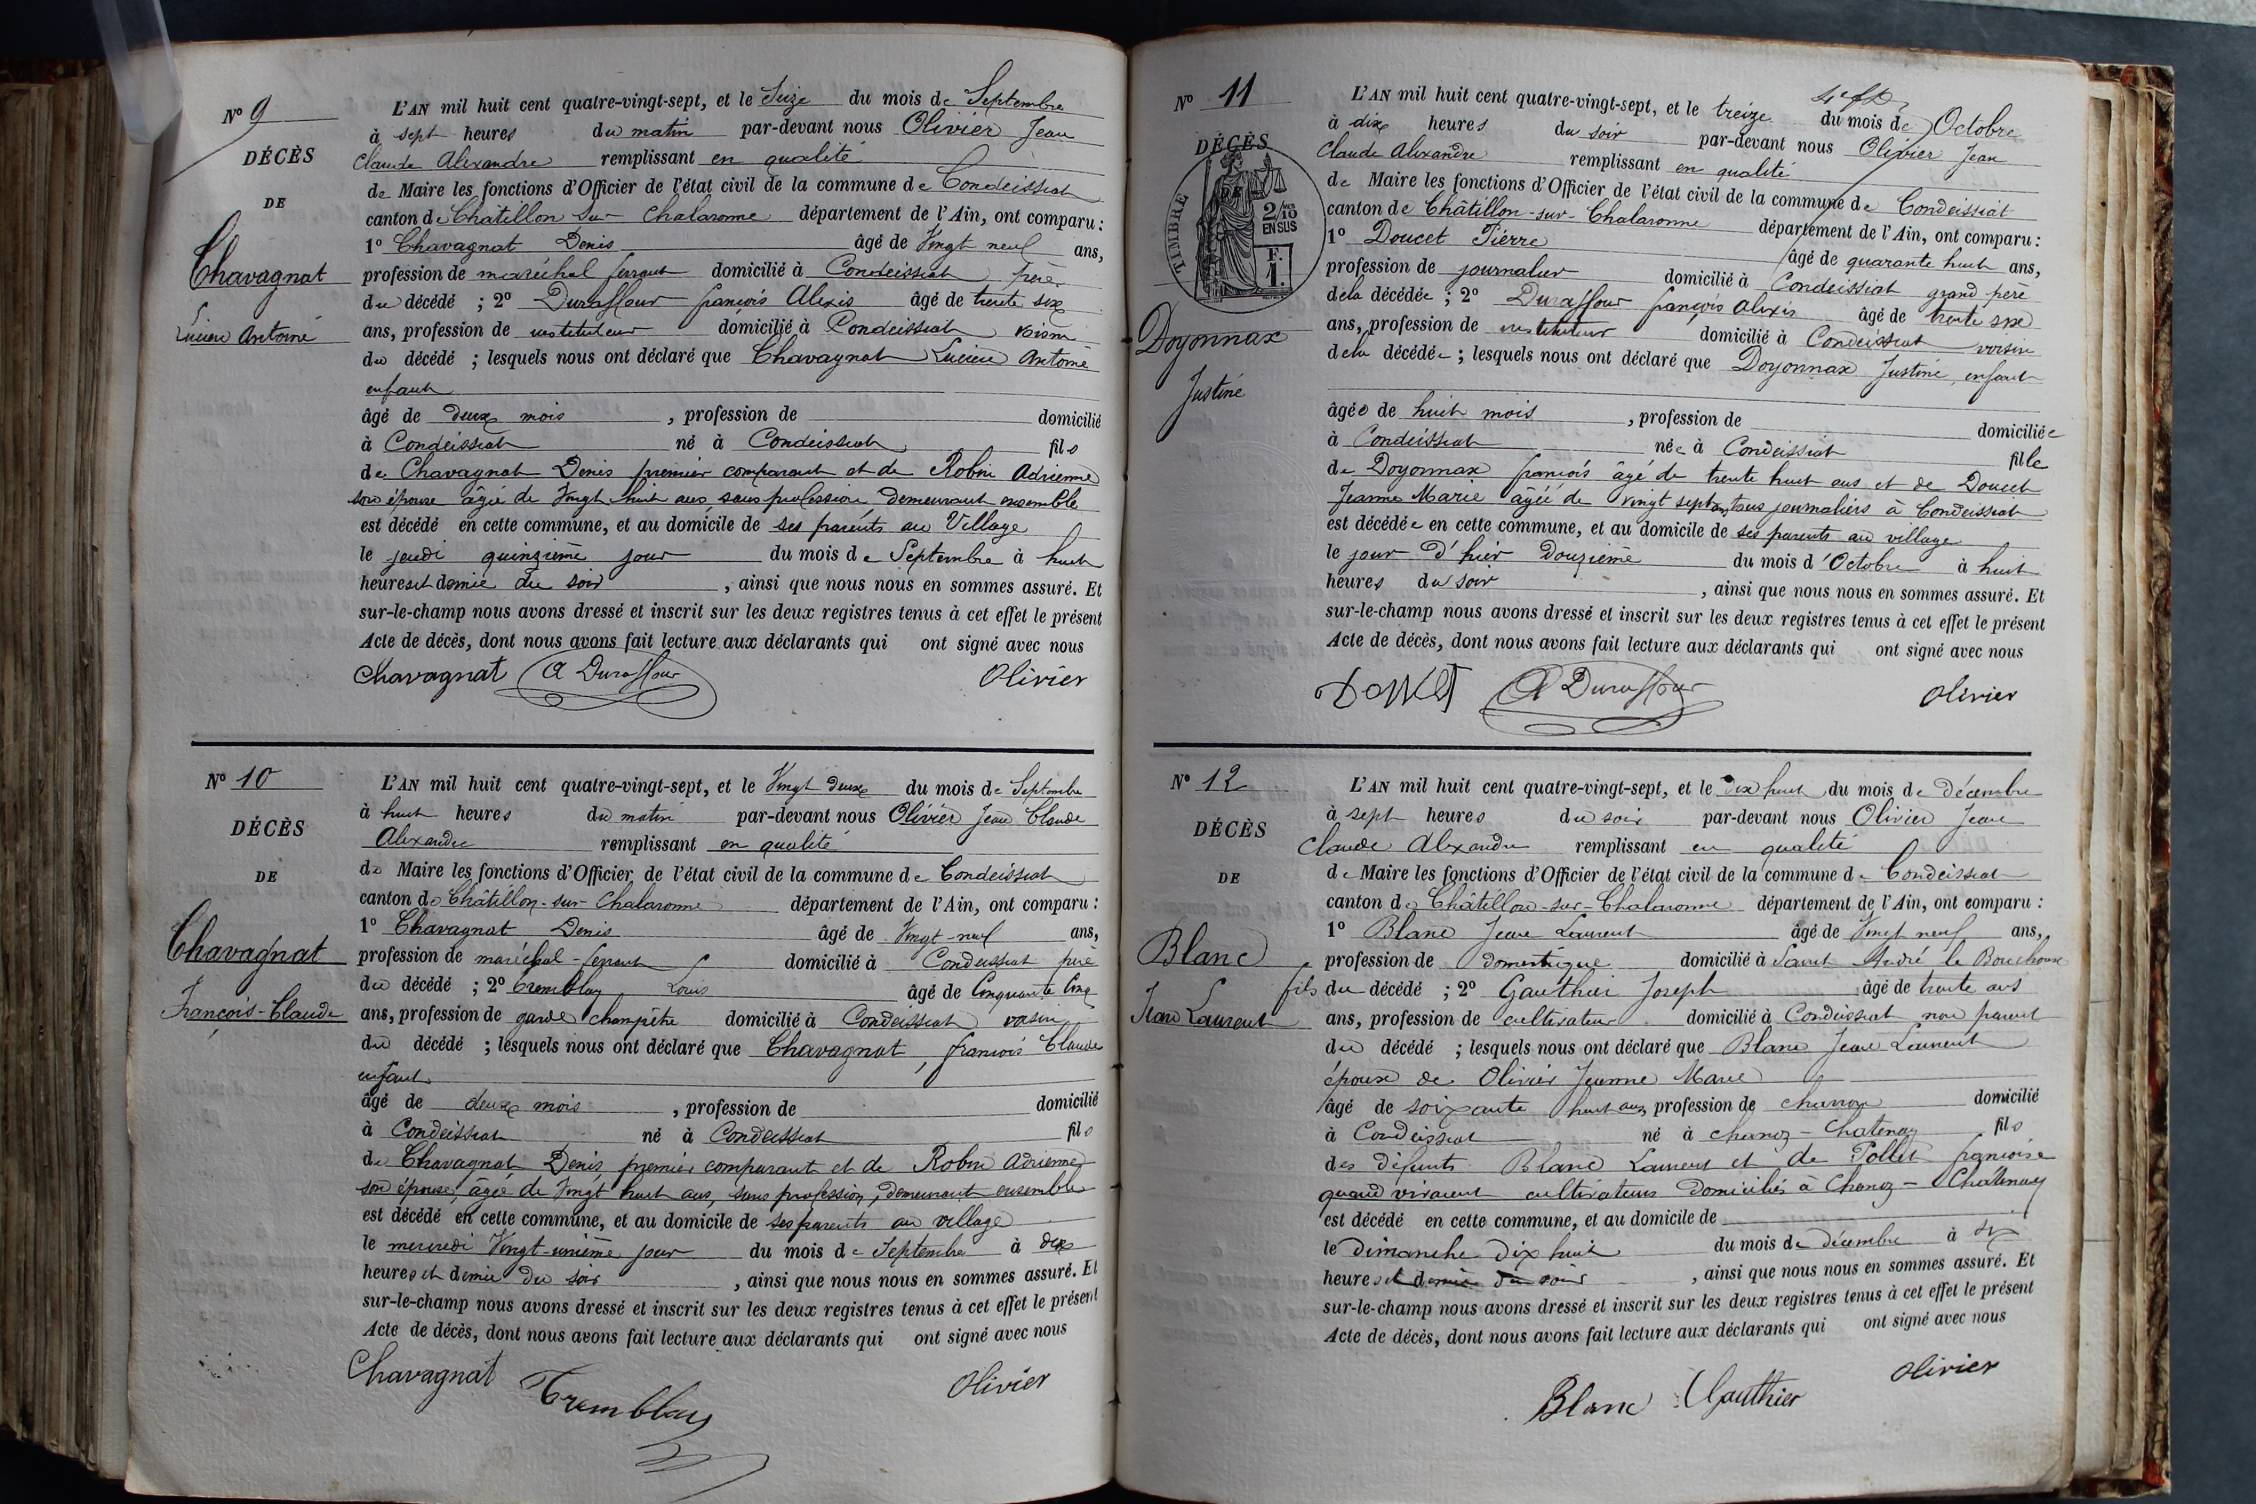 N° 9
DÉCÈS
DE
Chavagnat
Lucien Antoine
L'AN mil huit cent quatre-vingt-sept, et le Seize du mois de Septembre
à sept heures du matin par-devant nous Olivier Jean
Claude Alexandre remplissant en qualité
de Maire les fonctions d'Officier de l'état civil de la commune de Condeissiat
canton de Châtillon sur Chalaronne département de l'Ain, ont comparu :
1° Chavagnat Denis âgé de Vingt neuf ans,
profession de maréchal ferrant domicilié à Condeissiat père
du décédé ; 2° Duraffour françois Alexis âgé de trente six
ans, profession de instituteur domicilié à Condeissiat voisin
du décédé ; lesquels nous ont déclaré que Chavagnat Lucien Antoine
enfant
âgé de deux mois , profession de domicilié
à Condeissiat né à Condeissiat fils
de Chavagnat Denis premier comparant et de Robin Adrienne
son épouse âgée de Vingt huit ans, sans profession, demeurant ensemble
est décédé en cette commune, et au domicile de ses parents au Village
le jeudi quinzième jour du mois de Septembre à huit
heures et demie du soir , ainsi que nous nous en sommes assuré. Et
sur-le-champ nous avons dressé et inscrit sur les deux registres tenus à cet effet le présent
Acte de décès, dont nous avons fait lecture aux déclarants qui ont signé avec nous
Chavagnat A Duraffour Olivier
N° 10
DÉCÈS
DE
Chavagnat
François-Claude
L'AN mil huit cent quatre-vingt-sept, et le Vingt deux du mois de Septembre
à huit heures du matin par-devant nous Olivier Jean Claude
Alexandre remplissant en qualité
de Maire les fonctions d'Officier de l'état civil de la commune de Condeissiat
canton de Châtillon-sur-Chalaronne département de l'Ain, ont comparu :
1° Chavagnat Denis âgé de Vingt-neuf ans,
profession de maréchal-ferrant domicilié à Condeissiat père
du décédé ; 2° Tremblay Louis âgé de Cinquante Cinq
ans, profession de garde champêtre domicilié à Condeissiat voisin
du décédé ; lesquels nous ont déclaré que Chavagnat, françois Claude
enfant
âgé de deux mois , profession de domicilié
à Condeissiat né à Condeissiat fils
de Chavagnat Denis, premier comparant et de Robin Adrienne
son épouse, âgée de Vingt huit ans, sans profession, demeurant ensemble
est décédé en cette commune, et au domicile de ses parents au village
le mercredi Vingt-unième jour du mois de Septembre à dix
heures et demie du soir , ainsi que nous nous en sommes assuré. Et
sur-le-champ nous avons dressé et inscrit sur les deux registres tenus à cet effet le présent
Acte de décès, dont nous avons fait lecture aux déclarants qui ont signé avec nous
Chavagnat Tremblay Olivier
N° 11
DÉCÈS
TIMBRE
2/10
EN SUS
F.
1.
Doyonnax
Justine
L'AN mil huit cent quatre-vingt-sept, et le treize du mois de Octobre
à dix heures du soir par-devant nous Olivier Jean
Claude Alexandre remplissant en qualité
de Maire les fonctions d'Officier de l'état civil de la commune de Condeissiat
canton de Châtillon-sur-Chalaronne département de l'Ain, ont comparu :
1° Doucet Pierre âgé de quarante huit ans,
profession de journalier domicilié à Condeissiat grand père
de la décédée ; 2° Duraffour françois Alexis âgé de trente six
ans, profession de instituteur domicilié à Condeissiat voisin
de la décédée ; lesquels nous ont déclaré que Doyonnax Justine, enfant
âgée de huit mois , profession de domiciliée
à Condeissiat née à Condeissiat fille
de Doyonnax françois âgé de trente huit ans et de Doucet
Jeanne Marie âgée de vingt sept ans, tous journaliers à Condeissiat
est décédée en cette commune, et au domicile de ses parents au village
le jour d'hier Douzième du mois d'Octobre à huit
heures du soir , ainsi que nous nous en sommes assuré. Et
sur-le-champ nous avons dressé et inscrit sur les deux registres tenus à cet effet le présent
Acte de décès, dont nous avons fait lecture aux déclarants qui ont signé avec nous
A Duraffour Olivier
N° 12
DÉCÈS
DE
Blanc
Jean Laurent
L'AN mil huit cent quatre-vingt-sept, et le dix huit du mois de décembre
à sept heures du soir par-devant nous Olivier Jean
Claude Alexandre remplissant en qualité
de Maire les fonctions d'Officier de l'état civil de la commune de Condeissiat
canton de Châtillon-sur-Chalaronne département de l'Ain, ont comparu :
1° Blanc Jean Laurent âgé de Vingt neuf ans,
profession de domestique domicilié à Saint André le Bouchoux
fils du décédé ; 2° Gauthier Joseph âgé de trente ans
ans, profession de cultivateur domicilié à Condeissiat non parent
du décédé ; lesquels nous ont déclaré que Blanc Jean Laurent
époux de Olivier Jeanne Marie
âgé de soixante huit ans, profession de charron domicilié
à Condeissiat né à Chanoz-Chatenay fils
des défunts Blanc Laurent et de Pollet françoise
quand vivaient cultivateurs domiciliés à Chanoz-Châtenay
est décédé en cette commune, et au domicile de
le Dimanche dix huit du mois de décembre à six
heures et demie du soir , ainsi que nous nous en sommes assuré. Et
sur-le-champ nous avons dressé et inscrit sur les deux registres tenus à cet effet le présent
Acte de décès, dont nous avons fait lecture aux déclarants qui ont signé avec nous
Blanc Gauthier Olivier